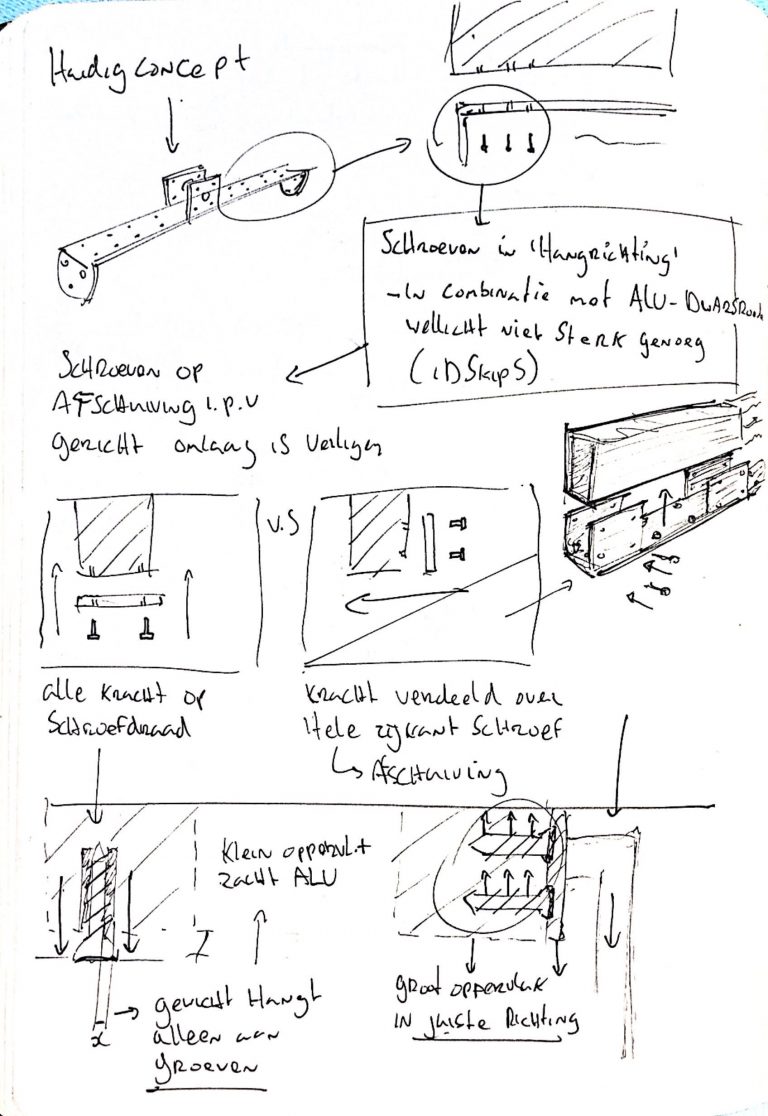 Huidig concept
Schroeven in 'Hangrichting'
- In combinatie met ALU-Dwars
wellicht niet sterk genoeg
(1DSkipS)
Schroeven op
Afschuiving i.p.v
gericht omlaag is veiliger
V.S
alle kracht op
Schroefdraad
Kracht verdeeld over
Hele zijkant Schroef
Afschuiving
Klein oppervlak
zacht ALU
gewicht Hangt
alleen aan
groeven
x
groot oppervlak
in juiste Richting